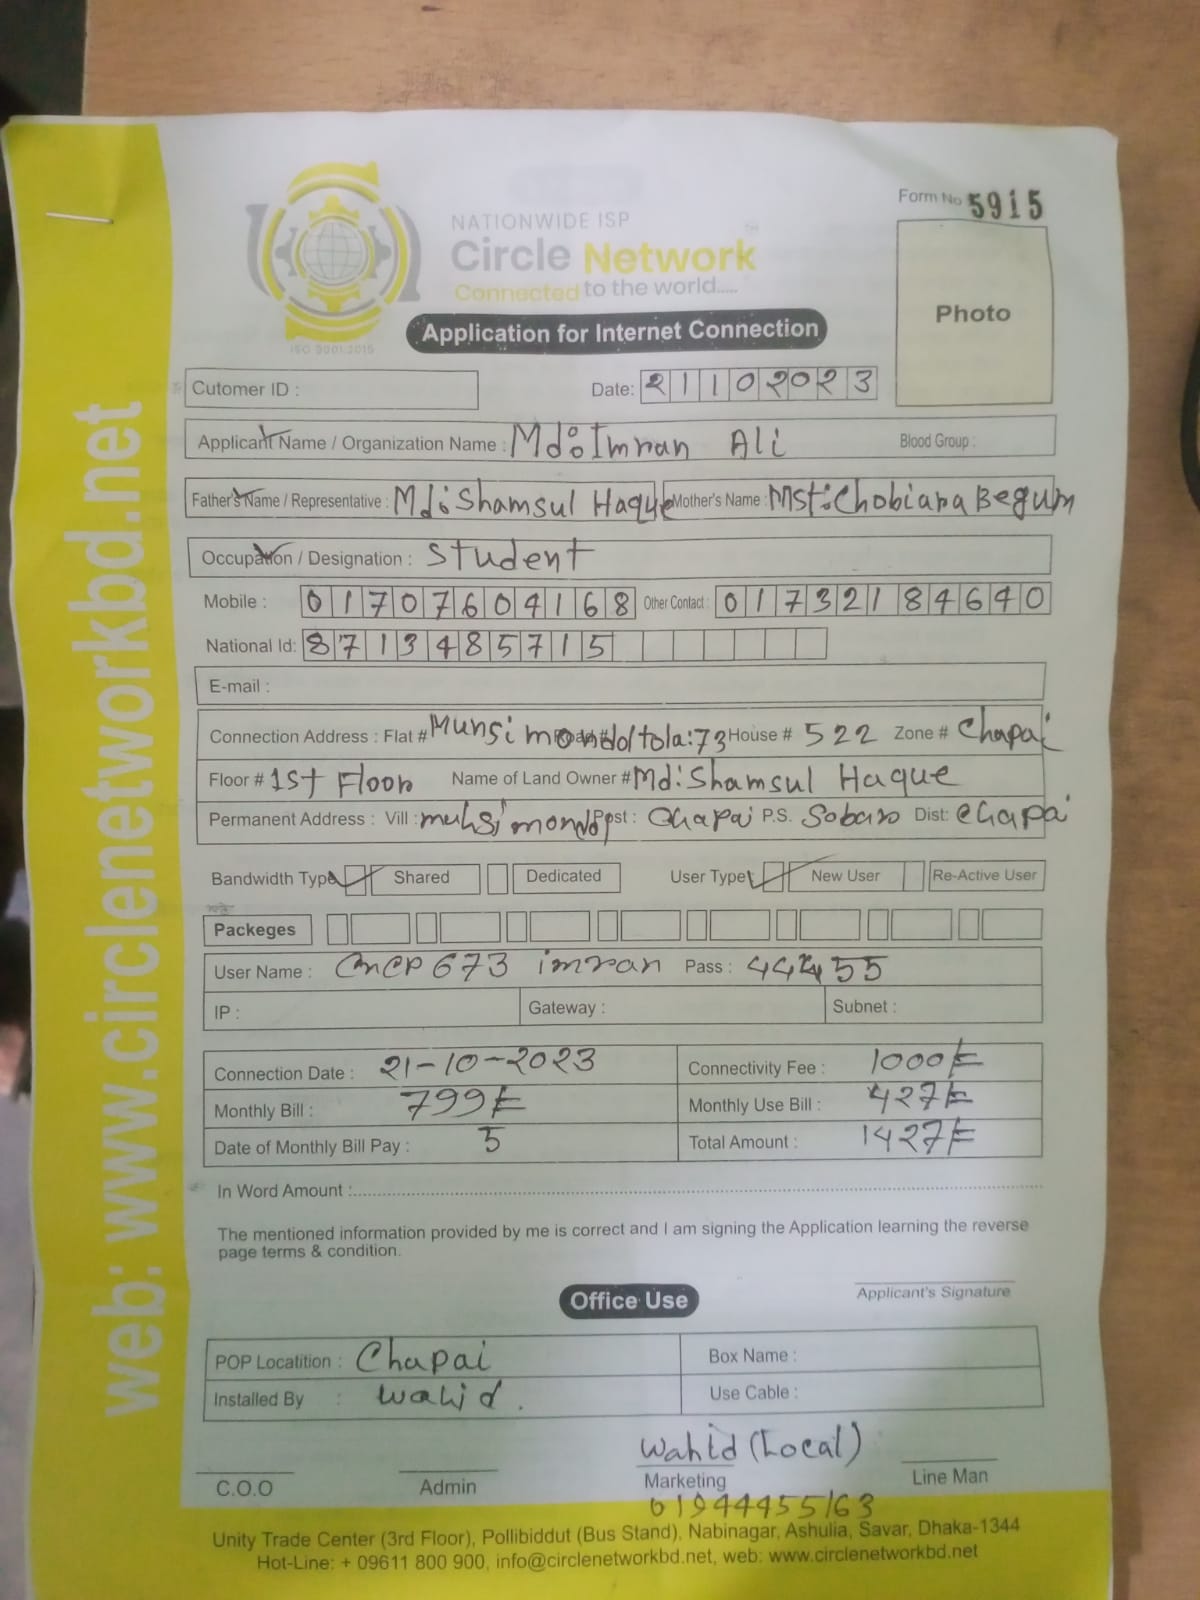 Form No 5915
NATIONWIDE ISP
Circle Network
Connected to the world.....
ISO 9001:2015
Photo
Application for Internet Connection
Cutomer ID : Date: 21102023
Applicant Name / Organization Name : Md: Imran Ali Blood Group :
Father's Name / Representative : Md: Shamsul Haque Mother's Name : Mst: Chobiara Begum
Occupation / Designation : Student
Mobile : 01707604168 Other Contact : 01732184640
National Id: 8713485715
E-mail :
Connection Address : Flat # Munsi mondol tola: 73 House # 522 Zone # Chapai
Floor # 1st Floor Name of Land Owner # Md: Shamsul Haque
Permanent Address : Vill : munsi mondol Post : Chapai P.S. Dist: Chapai
Bandwidth Type Shared Dedicated User Type New User Re-Active User
Packeges
User Name : CNCP673 imran Pass : 55
IP : Gateway : Subnet :
Connection Date : 21-10-2023 Connectivity Fee : 1000/=
Monthly Bill : 799/= Monthly Use Bill : 427/=
Date of Monthly Bill Pay : 5 Total Amount : 1427/=
In Word Amount :
The mentioned information provided by me is correct and I am signing the Application learning the reverse
page terms & condition.
Applicant's Signature
Office Use
POP Locatition : Chapai Box Name :
Installed By : Wahid. Use Cable :
Wahid (Local)
C.O.O Admin Marketing Line Man
01944455163
Unity Trade Center (3rd Floor), Pollibiddut (Bus Stand), Nabinagar, Ashulia, Savar, Dhaka-1344
Hot-Line: + 09611 800 900, info@circlenetworkbd.net, web: www.circlenetworkbd.net
web: www.circlenetworkbd.net